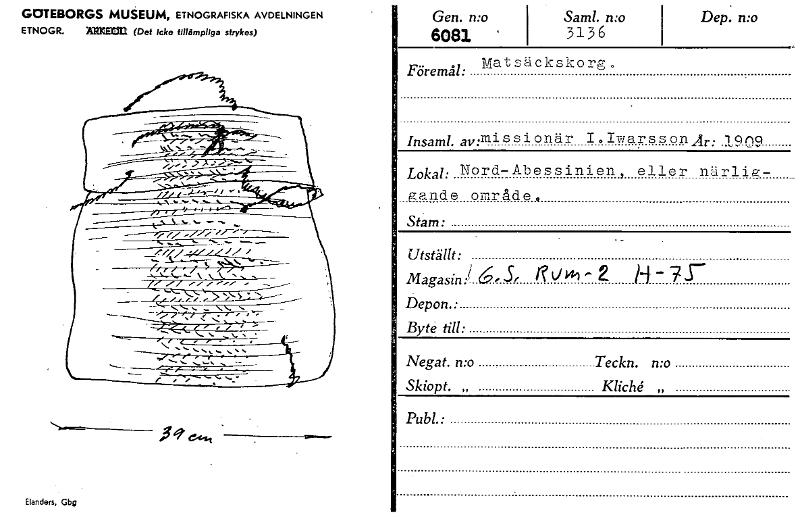 GÖTEBORGS MUSEUM, ETNOGRAFISKA AVDELNINGEN
ETNOGR. ARKEOL. (Det icke tillämpliga strykes)
39 cm
Elanders, Gbg
Gen. n:o Saml. n:o Dep. n:o
6081 3136
Föremål: Matsäckskorg.
Insaml. av: missionär I.Iwarsson År: 1909
Lokal: Nord-Abessinien, eller närlig-
gande område.
Stam:
Utställt:
Magasin: G.S. RUM-2 H-75
Depon.:
Byte till:
Negat. n:o Teckn. n:o
Skiopt. „ Kliché „
Publ.: